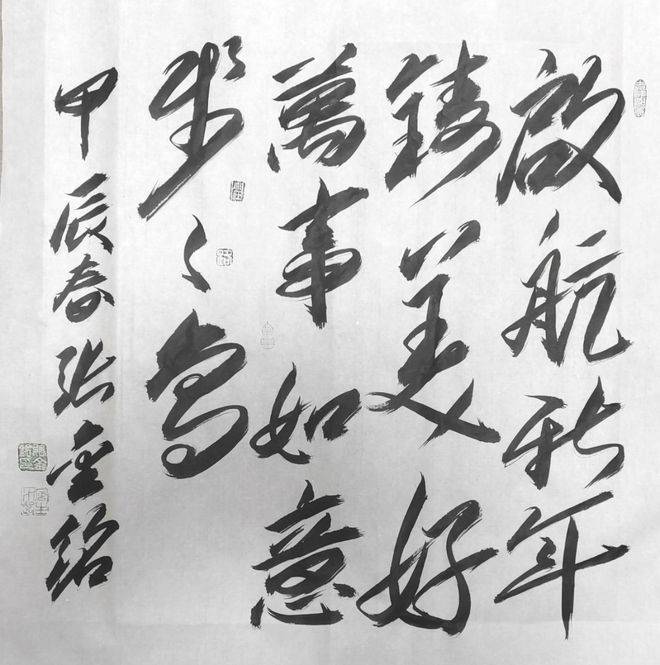 啟航新年
鑄美好
萬事如意
步々高
甲辰春張金